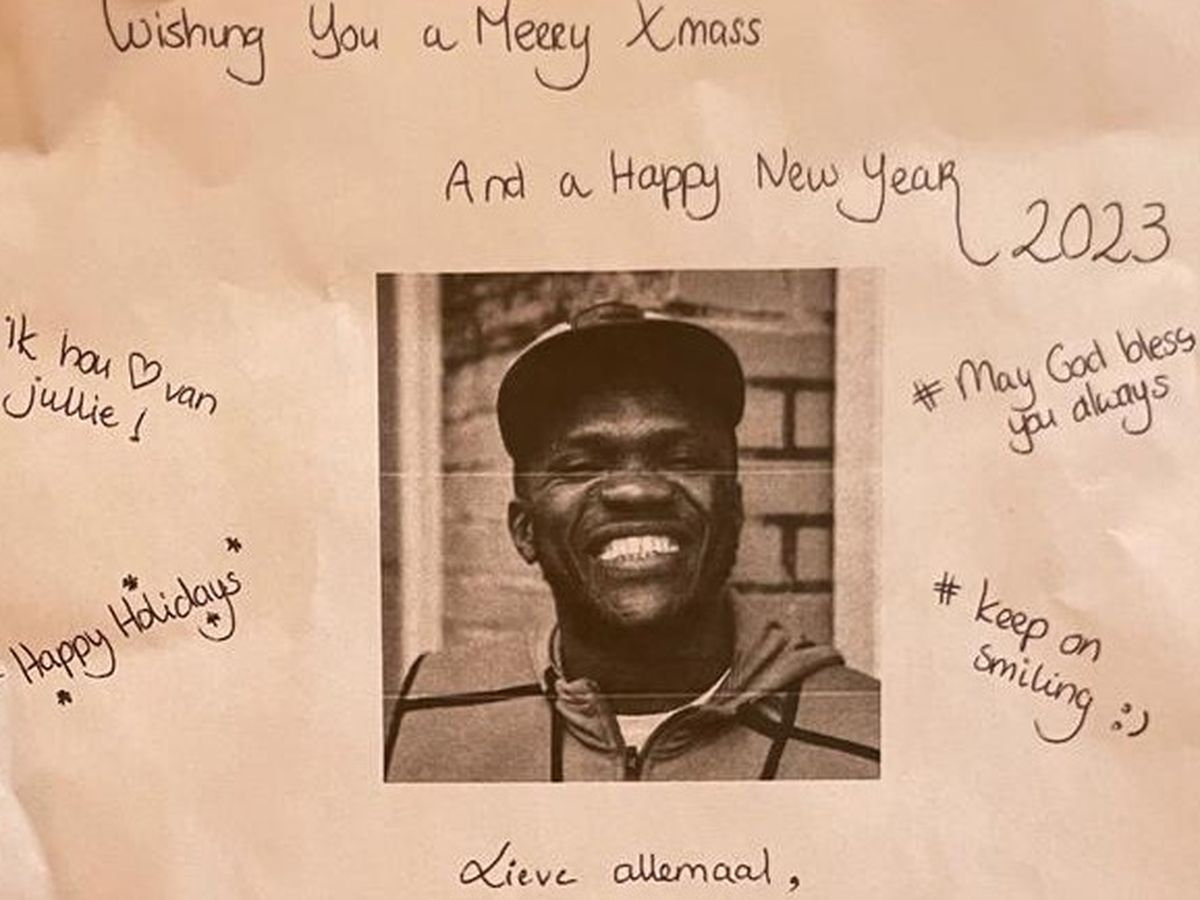 Wishing You a Merry Xmass
And a Happy New Year
2023
ik hou ♡ van
jullie!
# May God bless
you always
Happy Holidays
# keep on
smiling :)
Lieve allemaal,